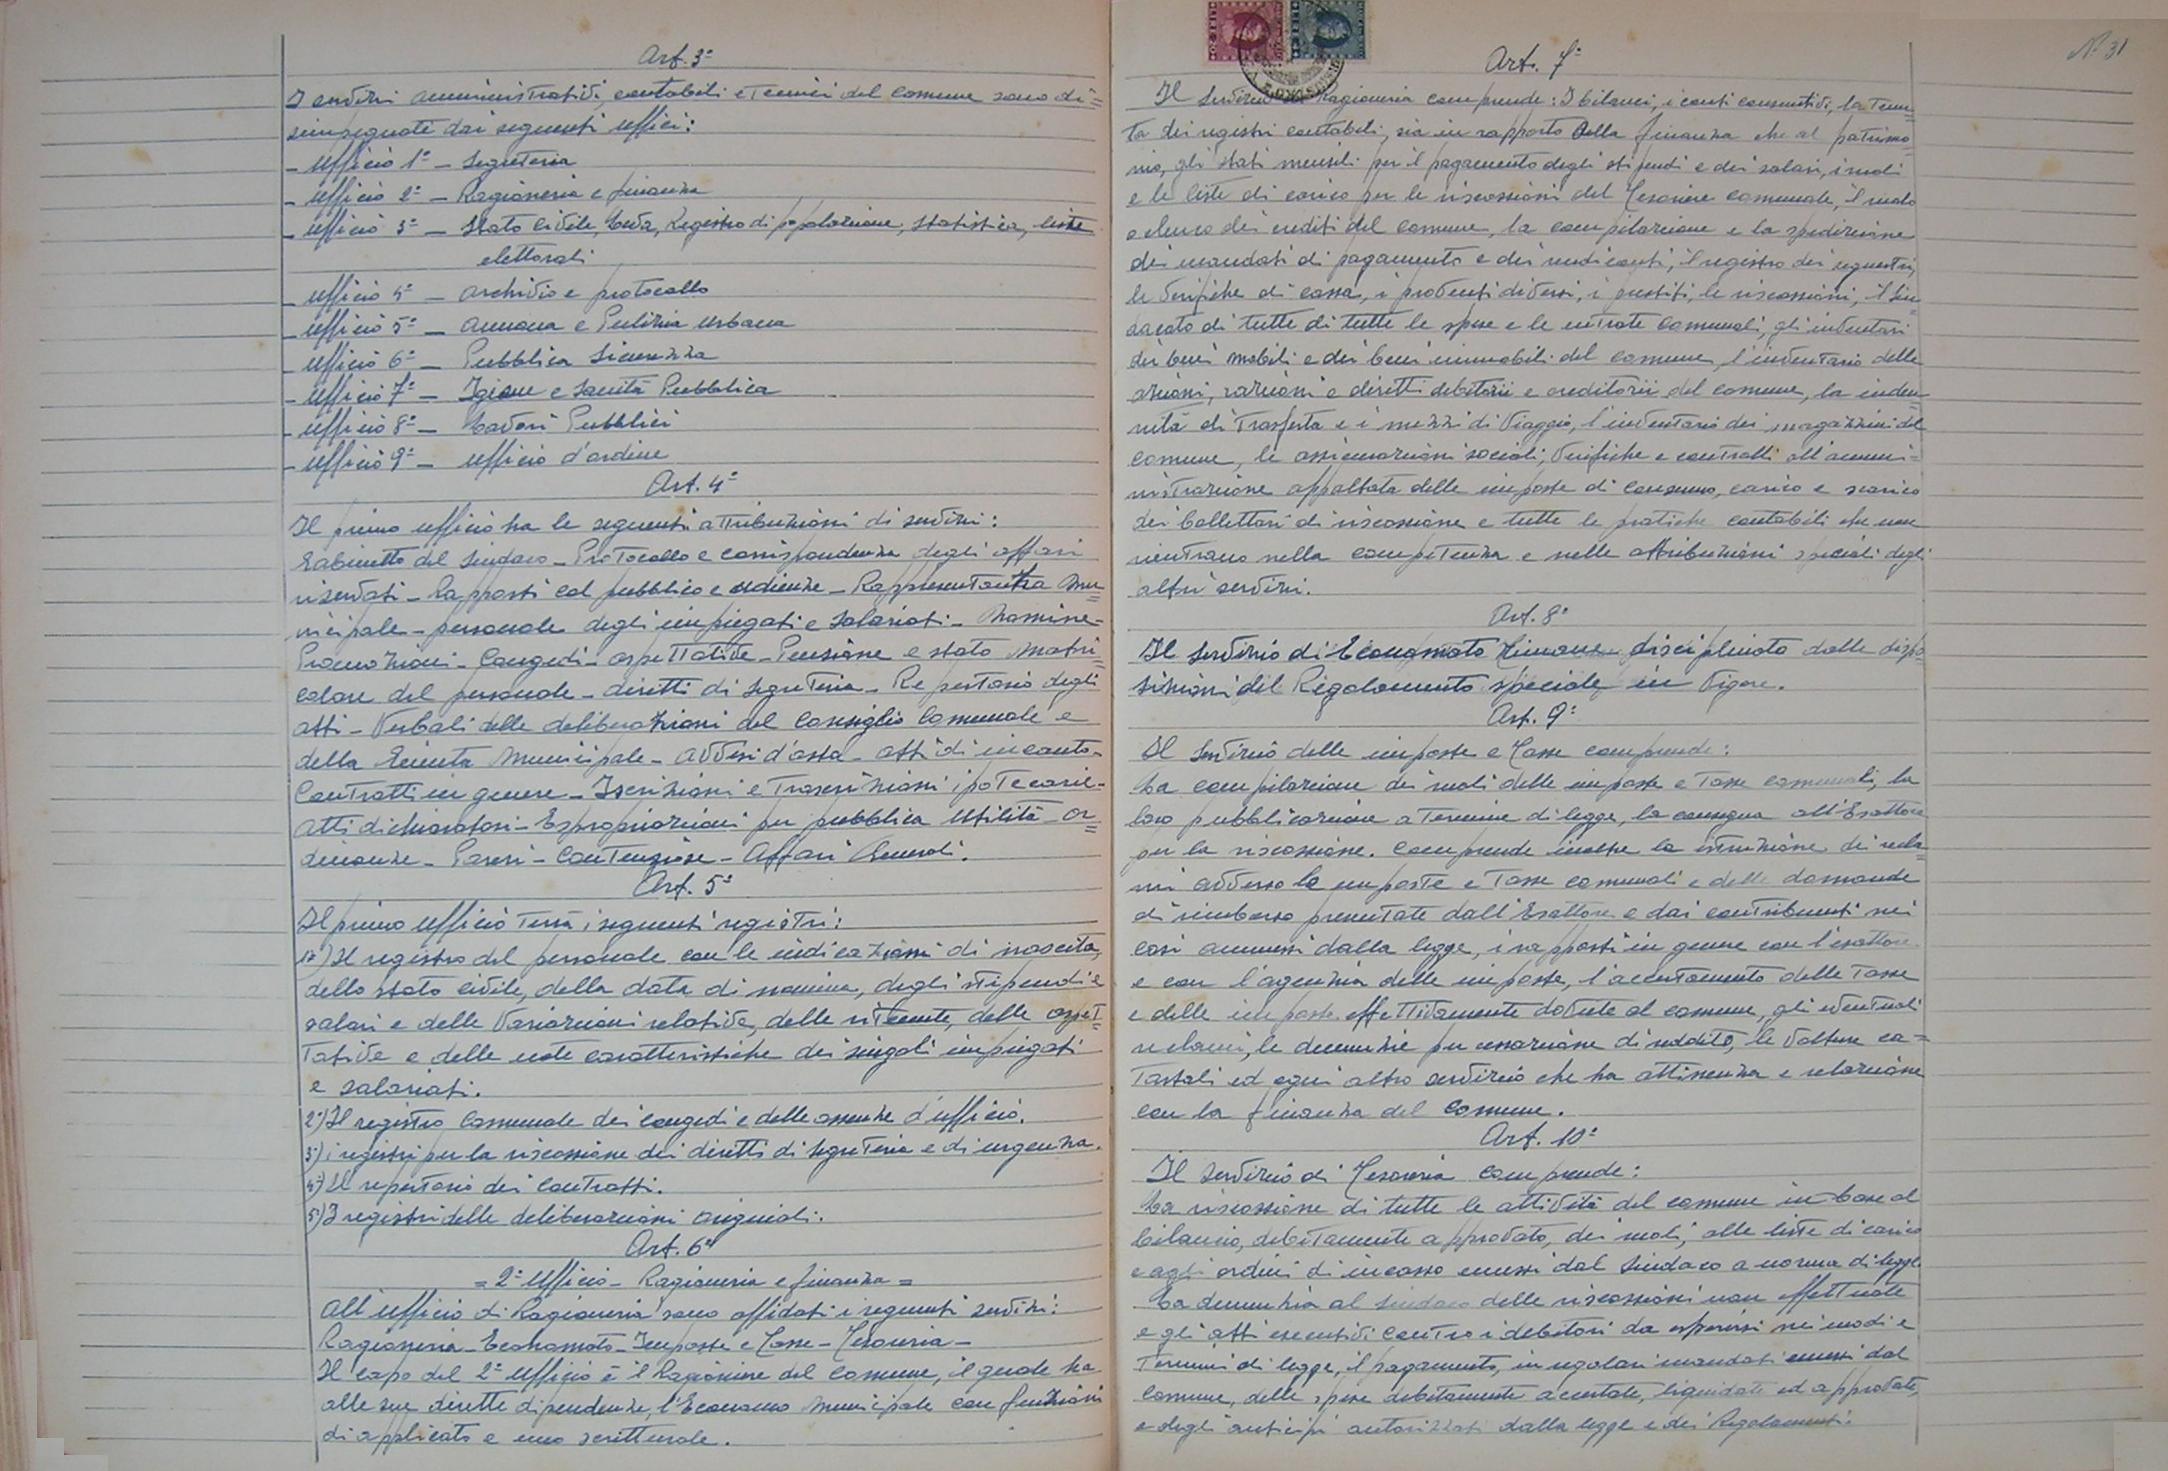 Art. 3°
I servizi amministrativi, contabili e tecnici del comune sono di=
simpegnati dai seguenti uffici:
- Ufficio 1° - Segreteria
- Ufficio 2° - Ragioneria e finanza
- Ufficio 3° - Stato Civile, Leva, Registro di popolazione, statistica, liste
elettorali
- Ufficio 4° - Archivio e protocollo
- Ufficio 5° - Annona e Pulizia Urbana
- Ufficio 6° - Pubblica Sicurezza
- Ufficio 7° - Igiene e Sanità Pubblica
- Ufficio 8° - Lavori Pubblici
- Ufficio 9° - Ufficio d'ordine
Art. 4°
Il primo ufficio ha le seguenti attribuzioni di servizi:
Gabinetto del Sindaco - Protocollo e corrispondenza degli affari
riservati - Rapporti col pubblico e udienze - Rappresentanza Mu=
nicipale - personale degli impiegati e salariati - Nomine -
Promozioni - Congedi - aspettative - Pensione e stato matri=
colare del personale - diritti di segreteria - Repertorio degli
atti - Verbali delle deliberazioni del Consiglio Comunale e
della Giunta Municipale - Avvisi d'asta - atti di incanto -
Contratti in genere - Iscrizioni e Trascrizioni ipotecarie -
Atti dichiaratori - Espropriazioni per pubblica utilità - Or=
dinanze - Pareri - Contenzioso - Affari Generali.
Art. 5°
Il primo ufficio terrà i seguenti registri:
1°) Il registro del personale con le indicazioni di nascita,
dello stato civile, della data di nomina, degli stipendi e
salari e delle variazioni relative, delle ritenute, delle aspet=
tative e delle note caratteristiche dei singoli impiegati
e salariati.
2°) Il registro Comunale dei congedi e delle assenze d'ufficio.
3°) i registri per la riscossione dei diritti di segreteria e di urgenza.
4°) Il repertorio dei Contratti.
5°) I registri delle deliberazioni originali.
Art. 6°
= 2° Ufficio - Ragioneria e finanza =
All'ufficio di Ragioneria sono affidati i seguenti servizi:
Ragioneria - Economato - Imposte e Tasse - Tesoreria -
Il capo del 2° ufficio è il Ragioniere del comune, il quale ha
alle sue dirette dipendenze, l'Economo Municipale con funzioni
di applicato e uno scritturale.
N° 31
Art. 7°
Il Servizio Ragioneria comprende: I bilanci, i conti consuntivi, la tenu=
ta dei registri contabili, sia in rapporto della finanza che al patrimo=
nio, gli stati mensili per il pagamento degli stipendi e dei salari, i ruoli
e le liste di carico per le riscossioni del Tesoriere comunale, il ruolo
o elenco dei crediti del comune, la compilazione e la spedizione
dei mandati di pagamento e dei rendiconti, il registro dei sequestri,
le verifiche di cassa, i proventi diversi, i prestiti, le riscossioni, il sin=
dacato di tutte di tutte le spese e le entrate comunali, gli inventari
dei beni mobili e dei beni immobili del comune, l'inventario delle
azioni, razioni e diretti debitorii e creditorii del comune, la inden=
nità di trasferta e i mezzi di viaggio, l'inventario dei magazzini del
comune, le assicurazioni sociali, verifiche e contratti all'ammi=
nistrazione appaltata delle imposte di consumo, carico e scarico
dei bollettari di riscossione e tutte le pratiche contabili che non
rientrano nella competenza e nelle attribuzioni speciali degli
altri servizi.
Art. 8°
Il Servizio di Economato rimane disciplinato dalle dispo=
sizioni del Regolamento speciale in vigore.
Art. 9°
Il Servizio delle imposte e Tasse comprende:
La compilazione dei ruoli delle imposte e tasse comunali, la
loro pubblicazione a termine di legge, la consegna all'Esattore
per la riscossione. Comprende inoltre la istruzione di recla=
mi avverso le imposte e tasse comunali e delle domande
di rimborso presentate dall'Esattore e dai contribuenti nei
casi ammessi dalla legge, i rapporti in genere con l'esattore
e con l'agenzia delle imposte, l'accertamento delle tasse
e delle imposte effettivamente dovute al comune, gli eventuali
reclami, le denunzie per cessazione di reddito, le volture ca=
tastali ed ogni altro servizio che ha attinenza e relazione
con la finanza del comune.
Art. 10°
Il Servizio di Tesoreria comprende:
La riscossione di tutte le attività del comune in base al
bilancio, debitamente approvato, dei ruoli, alle liste di carico
e agli ordini di incasso emessi dal Sindaco a norma di legge
La denunzia al sindaco delle riscossioni non effettuate
e gli atti esecutivi contro i debitori da esperirsi nei modi e
termini di legge, il pagamento, in regolari mandati emessi dal
Comune, delle spese debitamente accertate, liquidate ed approvate,
e degli anticipi autorizzati dalla legge e dei Regolamenti.